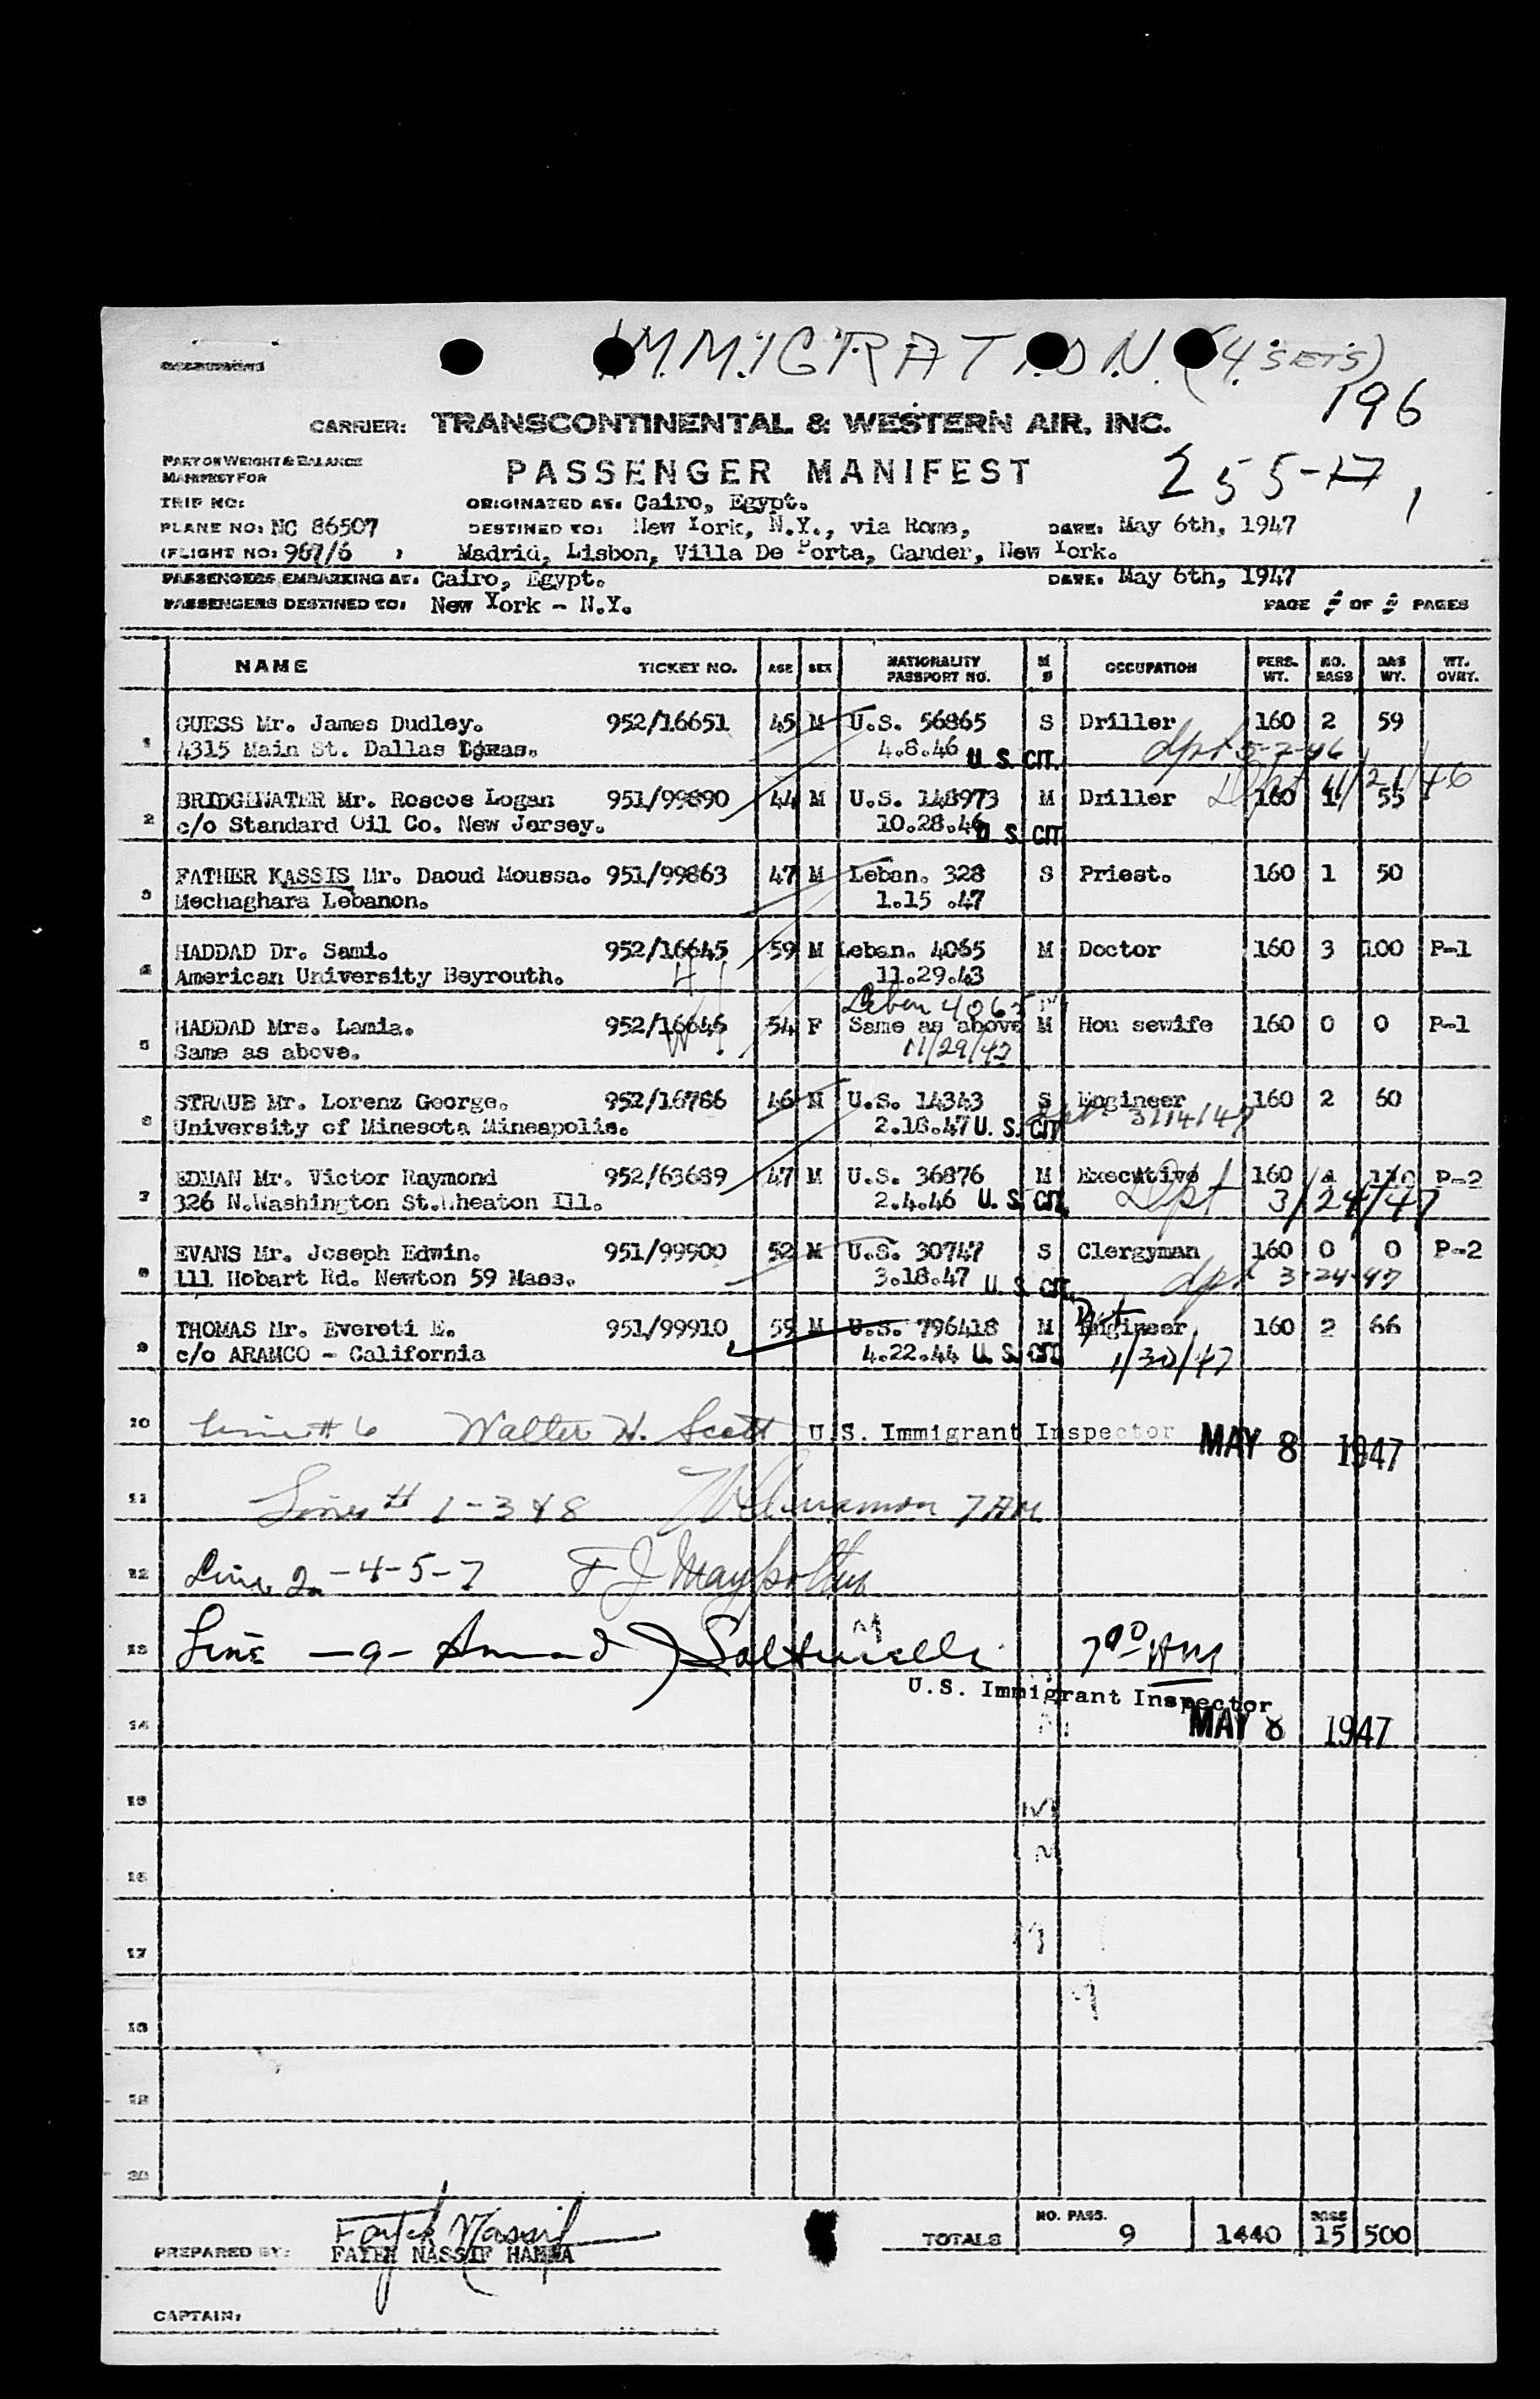 IMMIGRATION (4 SETS)
196
CARRIER: TRANSCONTINENTAL & WESTERN AIR, INC.
255-17
PART ON WEIGHT & BALANCE
MANIFEST FOR
PASSENGER MANIFEST
TRIP NO: ORIGINATED AT: Cairo, Egypt.
PLANE NO: NC 86507 DESTINED TO: New York, N.Y., via Rome, DATE: May 6th, 1947
(FLIGHT NO: 967/6 , Madrid, Lisbon, Villa De Porta, Gander, New York.
PASSENGERS EMBARKING AT: Cairo, Egypt. DATE: May 6th, 1947
PASSENGERS DESTINED TO: New York - N.Y. PAGE OF PAGES
NAME TICKET NO. AGE SEX NATIONALITY PASSPORT NO. M S OCCUPATION PERS. WT. NO. BAGS BAG WT. WT. OVRT.
1 GUESS Mr. James Dudley. 952/16651 45 M U.S. 56865 S Driller 160 2 59
4315 Main St. Dallas 4.8.46 U. S. CIT. dpt 5-2-46
Dpt 11/21/46
2 BRIDGEWATER Mr. Roscoe Logan 951/99890 44 M U.S. 148973 M Driller 160 1 55
c/o Standard Oil Co. New Jersey. 10.28.46 U. S. CIT
3 FATHER KASSIS Mr. Daoud Moussa. 951/99863 47 M Leban. 328 S Priest. 160 1 50
Mechaghara Lebanon. 1.15 .47
4 HADDAD Dr. Sami. 952/16645 59 M Leban. 4065 M Doctor 160 3 100 P-1
American University Beyrouth. 11.29.43
Leban 4065
5 HADDAD Mrs. Lamia. 952/16646 54 F Same as above M Hou sewife 160 0 0 P-1
Same as above. 11/29/43
6 STRAUB Mr. Lorenz George. 952/16786 46 M U.S. 14343 S Engineer 160 2 60
University of Minesota Mineapolis. 2.18.47 U. S. CIT dpt 3/14/47
7 EDMAN Mr. Victor Raymond 952/63689 47 M U.S. 36876 M Executive 160 4 110 P-2
326 N.Washington St.Wheaton Ill. 2.4.46 U. S. CIT. Dpt 3/24/47
8 EVANS Mr. Joseph Edwin. 951/99900 52 M U.S. 30747 S Clergyman 160 0 0 P-2
111 Hobart Rd. Newton 59 Mass. 3.18.47 U. S. CIT. dpt 3-24-47
9 THOMAS Mr. Evereti E. 951/99910 59 M U.S. 796418 M Engineer 160 2 66
c/o ARAMCO - California 4.22.44 U. S. CIT. Dpt 1/30/47
10 Line # 6 Walter H. Scott U.S. Immigrant Inspector MAY 8 1947
11 Lines # 1-3 & 8 7 AM
12 Line 2 -4-5-7 F J
13 Line -9- 7 00 AM
U.S. Immigrant Inspector
14 MAY 8 1947
15
16
17
18
19
20
PREPARED BY: FAYEK NASSIF HANNA
TOTALS NO. PASS. 9 1440 BAGS 15 500
CAPTAIN: